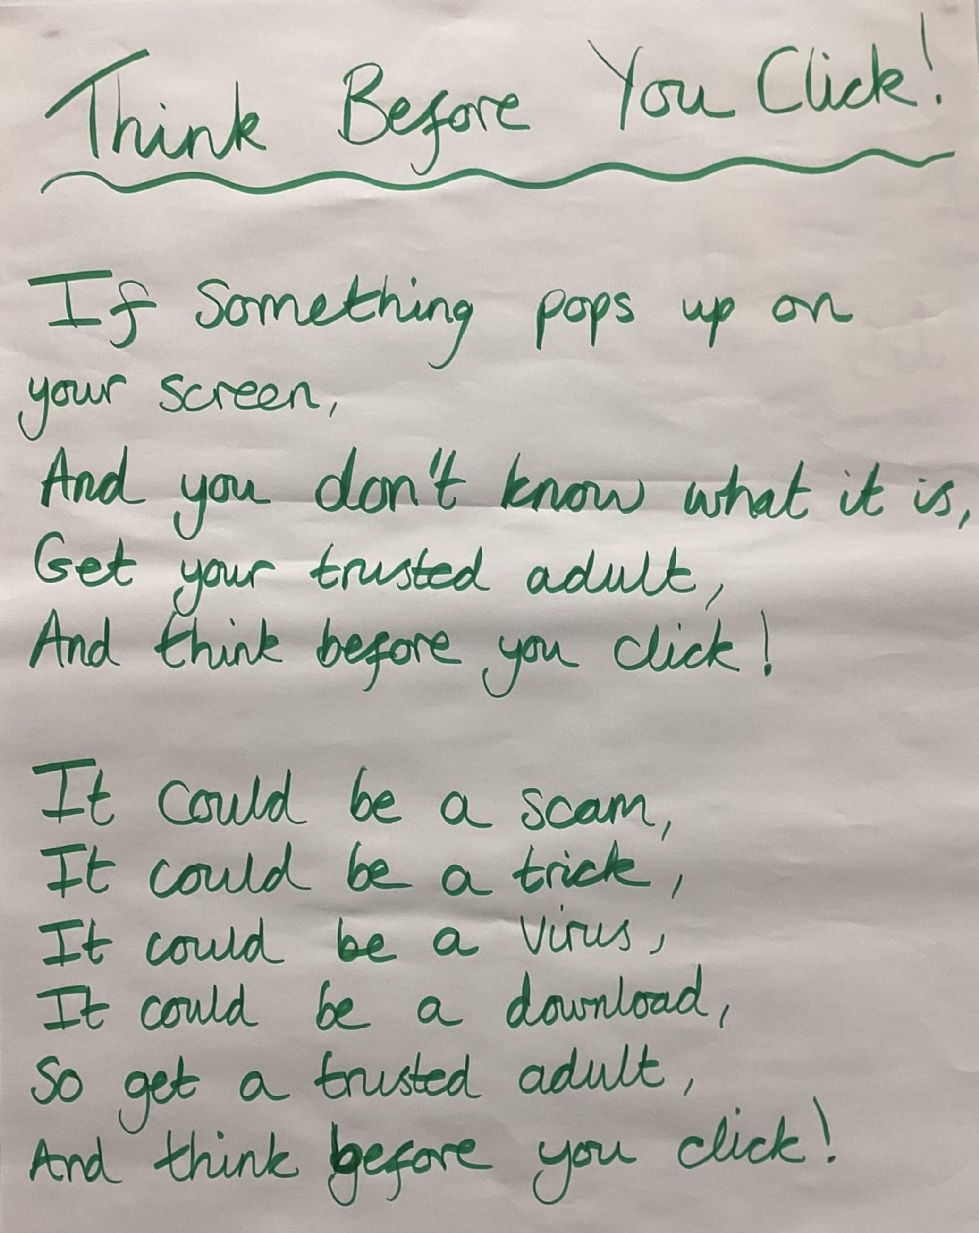 Think Before You Click!
If something pops up on
your screen,
And you don't know what it is,
Get your trusted adult,
And think before you click!
It could be a scam,
It could be a trick,
It could be a virus,
It could be a download,
So get a trusted adult,
And think before you click!